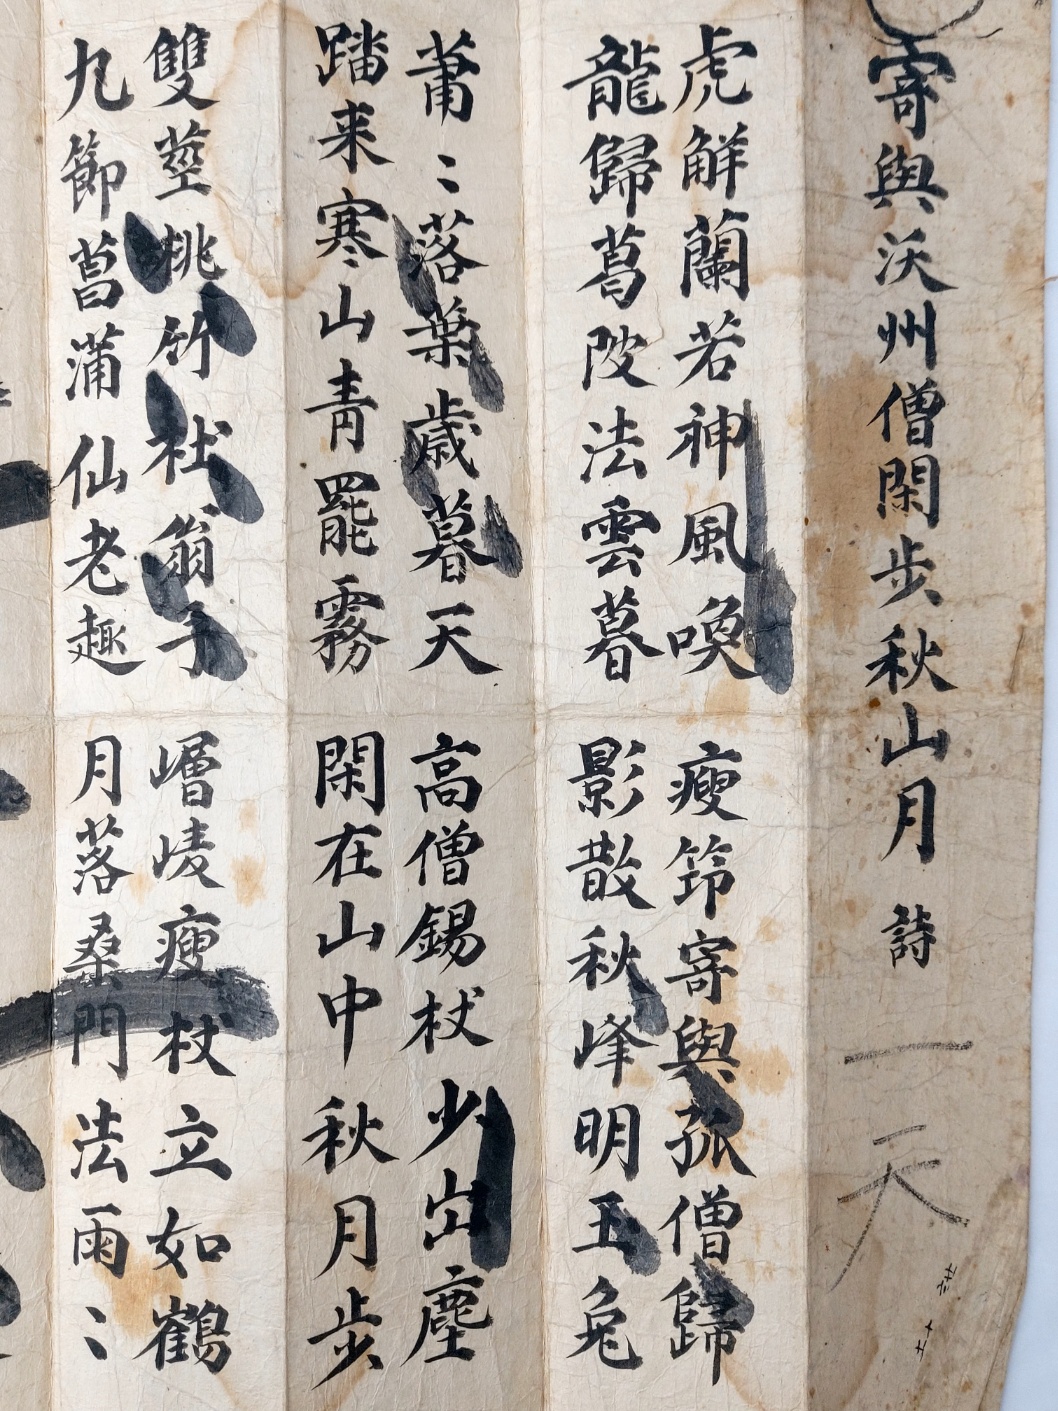 寄與沃州僧閑步秋山月 詩
一天
虎解蘭若神風喚 瘦筇寄與孤僧歸
龍歸葛陂法雲暮 影散秋峰明玉兔
莆〻落葉歲暮天 高僧錫杖少出塵
踏来寒山青罷霧 閑在山中秋月步
雙莖桃竹杜翁子 嶍崚瘦杖立如鶴
九節菖蒲仙老趣 月落桑門法雨〻